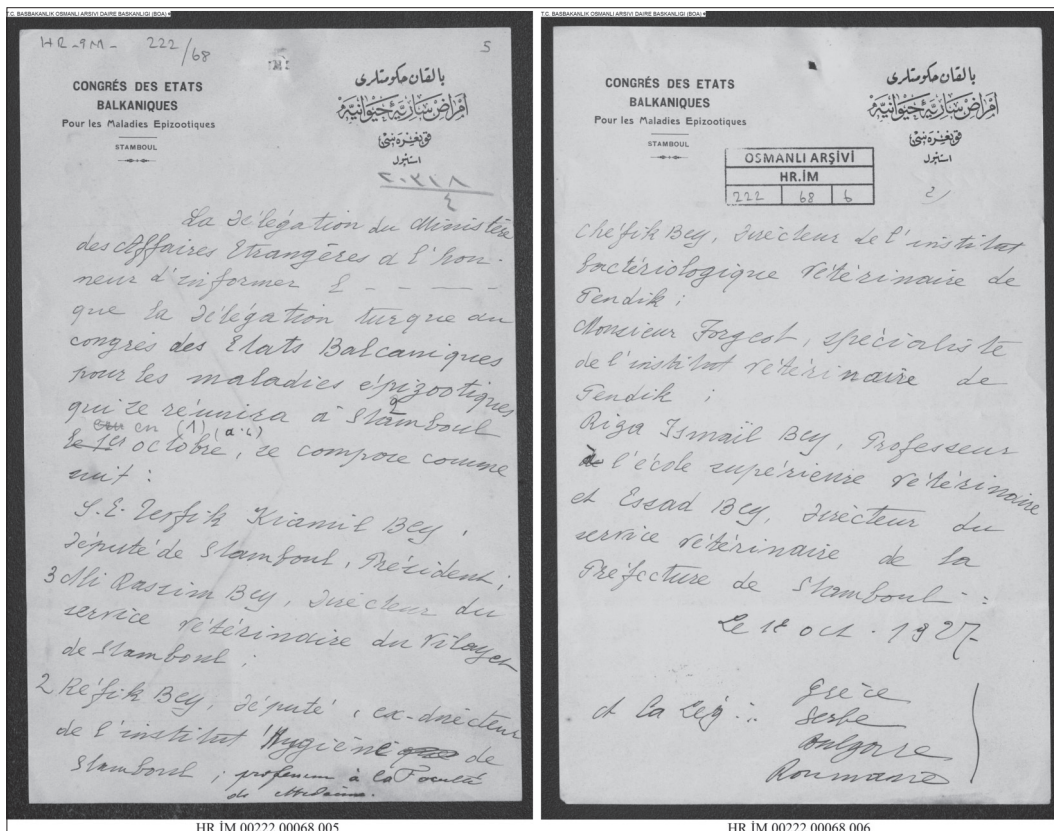 T.C. BASBAKANLIK OSMANLI ARSIVI DAIRE BASKANLIGI (BOA)
HR-İM- 222/68
5
CONGRÉS DES ETATS
BALKANIQUES
Pour les Maladies Epizootiques
STAMBOUL
بالقان حكومتلری
أمراض ساریهٔ حیوانیه
قونغره سی
استانبول
٢٠٢١٨
٤
La Délégation du Ministère
des Affaires Etrangères a l'hon-
neur d'informer l - - - - -
que la délégation turque au
congrès des Etats Balcaniques
pour les maladies épizootiques
qui se réunira à Stamboul
en (1) (a.c)
le 1er octobre, se compose comme
suit :
S.E. Tevfik Kiamil Bey,
député de Stamboul, Président ;
3 Ali Rassim Bey, Directeur du
service vétérinaire du Vilayet
de Stamboul ;
2 Réfik Bey, député, ex-directeur
de l'institut Hygiène de
Stamboul ; professeur à la Faculté
de Médecine.
HR.İM.00222.00068.005
T.C. BASBAKANLIK OSMANLI ARSIVI DAIRE BASKANLIGI (BOA)
CONGRÉS DES ETATS
BALKANIQUES
Pour les Maladies Epizootiques
STAMBOUL
بالقان حكومتلری
أمراض ساریهٔ حیوانیه
قونغره سی
استانبول
OSMANLI ARŞİVİ
HR.İM
222 68 6
2)
Chefik Bey, Directeur de l'institut
bactériologique vétérinaire de
Pendik ;
Monsieur Forgeot, spécialiste
de l'institut vétérinaire de
Pendik ;
Riza Ismaïl Bey, Professeur
à l'école supérieure vétérinaire
et Essad Bey, Directeur du
service vétérinaire de la
Préfecture de Stamboul .
Le 1er oct. 1927
et la Lég :
Grèce
Serbe
Bulgarie
Roumanie
HR.İM.00222.00068.006